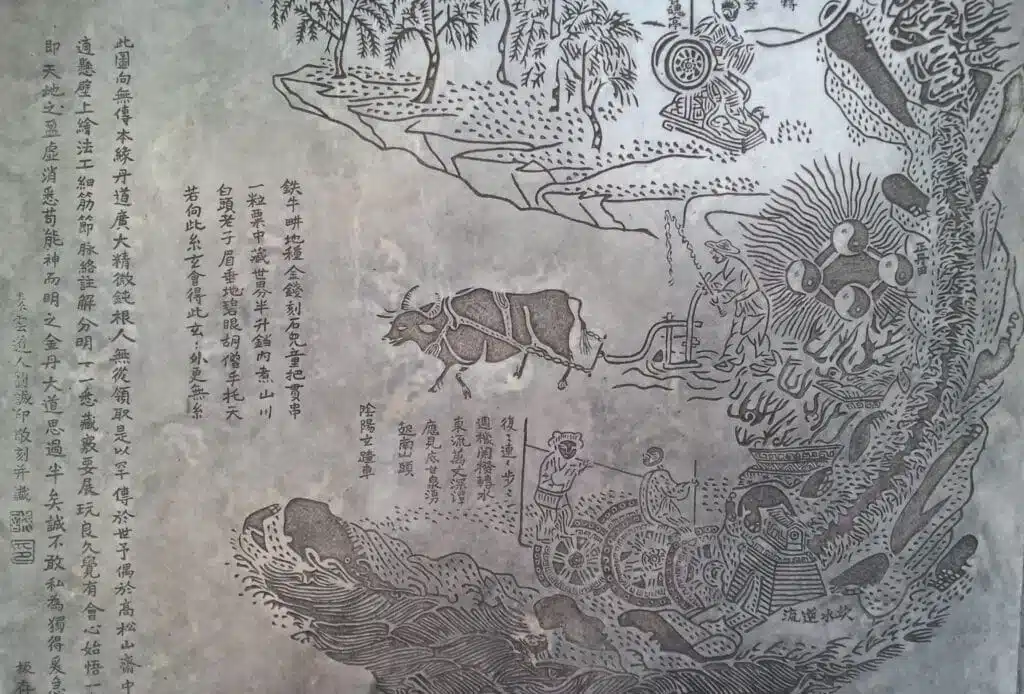 正丹田
鉄牛畊地種金錢刻石兒童把貫串
一粒粟中藏世界半升鐺內煮山川
白頭老子眉垂地碧眼胡僧手托天
若向此玄玄會得此玄玄外更無玄
復〻連〻步〻
週機關撥轉水
東流萬丈深潭
應見底甘泉湧
起南山頭
陰陽玄蹅車
坎水逆流
此圖向無傳本緣丹道廣大精微鈍根人無從領取是以罕傳於世予偶於高松山齋中
適懸壁上繪法工細筋節脈絡註解分明一一悉藏竅要展玩良久覺有會心始悟一
即天地之盈虛消息苟能神而明之金丹大道思過半矣誠不敢私為獨得爰急
素雲道人劉誠印敬刻并識
板存